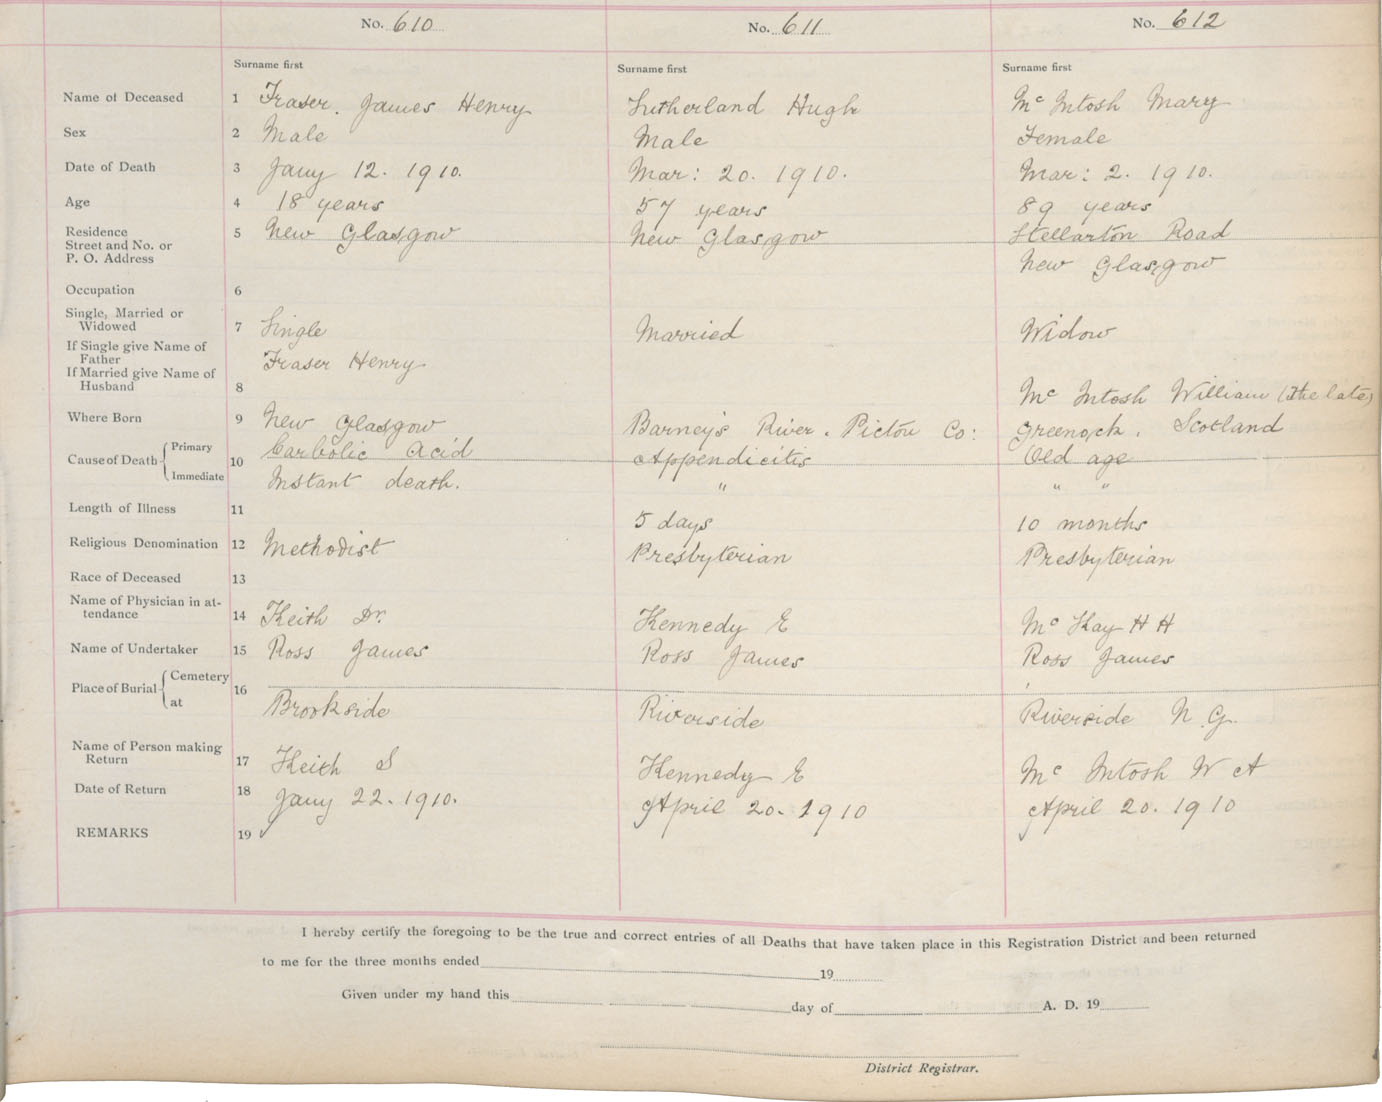 No. 610 No. 611 No. 612
Surname first Surname first Surname first
Name of Deceased 1 Fraser. James Henry Sutherland Hugh Mc Intosh Mary
Sex 2 Male Male Female
Date of Death 3 Jany 12. 1910. Mar: 20. 1910. Mar: 2. 1910.
Age 4 18 years 57 years 89 years
Residence
Street and No. or
P. O. Address 5 New Glasgow New Glasgow Stellarton Road
New Glasgow
Occupation 6
Single, Married or
Widowed 7 Single Married Widow
If Single give Name of
Father Fraser Henry
If Married give Name of
Husband 8 Mc Intosh William (the late)
Where Born 9 New Glasgow Barney's River. Pictou Co: Greenock. Scotland
Cause of Death Primary 10 Carbolic Acid Appendicitis Old age
Immediate Instant death. " " "
Length of Illness 11 5 days 10 months
Religious Denomination 12 Methodist Presbyterian Presbyterian
Race of Deceased 13
Name of Physician in at-
tendance 14 Keith Dr. Kennedy E Mc Kay H H
Name of Undertaker 15 Ross James Ross James Ross James
Place of Burial Cemetery 16
at Brookside Riverside Riverside N.G.
Name of Person making
Return 17 Keith S Kennedy E Mc Intosh W A
Date of Return 18 Jany 22. 1910. April 20. 1910 April 20. 1910
REMARKS 19
I hereby certify the foregoing to be the true and correct entries of all Deaths that have taken place in this Registration District and been returned
to me for the three months ended 19
Given under my hand this day of A. D. 19
District Registrar.